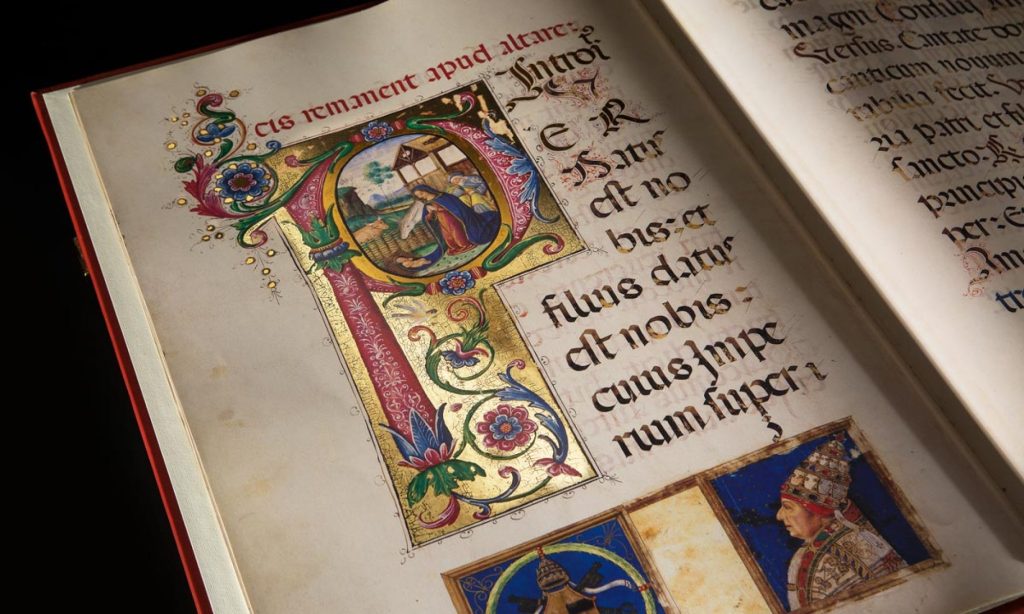 cis remanent apud altare:
Introi
P E R
Natus
est no
bis: et
filius datus
est nobis:
cuius Impe
rium super
magni Consilii
Versus. Cantate do
canticum novum
rabilia fecit
ria patri et fi
sancto.
principi
per: